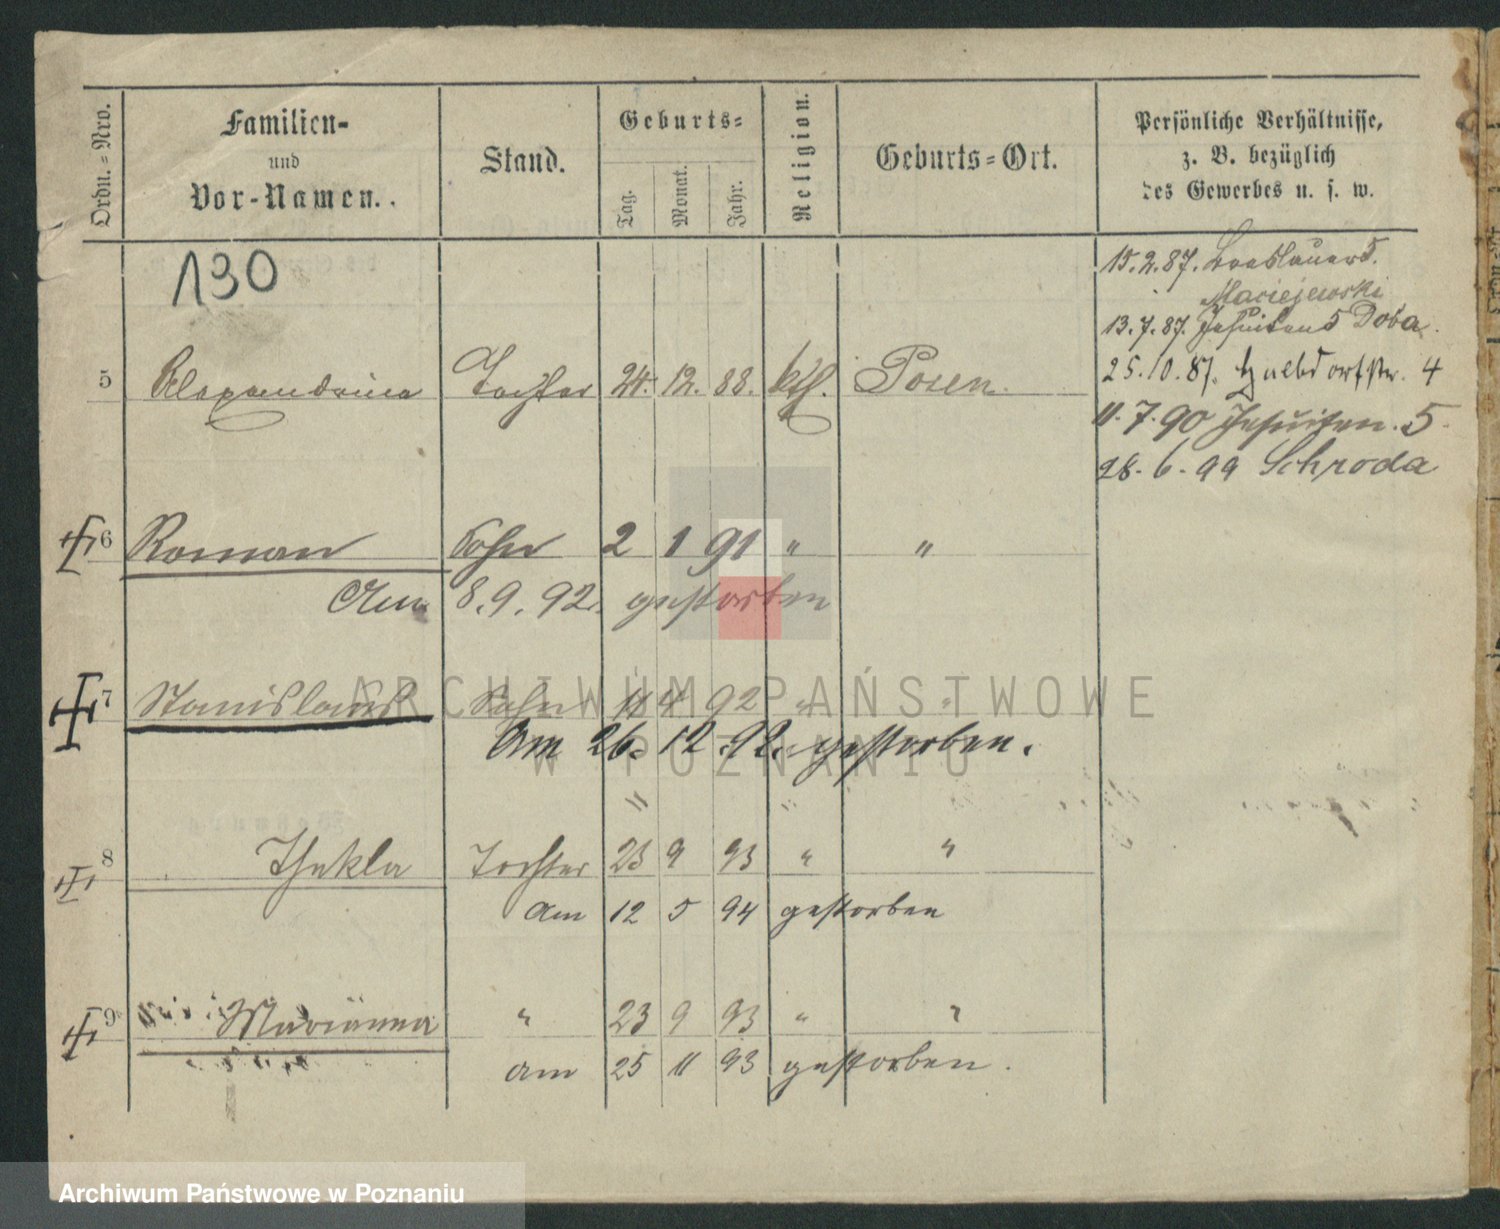 Ordn.=Nro.
Familien-
und
Vor-Namen.
Stand.
Geburts=
Tag.
Monat.
Jahr.
Religion.
Geburts=Ort.
Persönliche Verhältnisse,
z. B. bezüglich
des Gewerbes u. s. w.
130
15.2.87. Breslauer 5.
Maciejewski
13.7.87. Jesuiten 5 Doba.
25.10.87. Halbdorfstr. 4
11.7.90 Jesuiten. 5.
28.6.99 Schroda
5 Alexandrina Tochter 24. 12. 88. kth. Posen.
6 Roman Sohn 2 1 91 " "
Am 8.9.92. gestorben
7 Stanislaus Sohn 11 4 92 " "
Am 26. 12. 92. gestorben.
8 Thekla Tochter 23 9 93 " "
am 12 5 94 gestorben
9 Marianna " 23 9 93 " "
am 25 11 93 gestorben.
ARCHIWUM PAŃSTWOWE
W POZNANIU
Archiwum Państwowe w Poznaniu